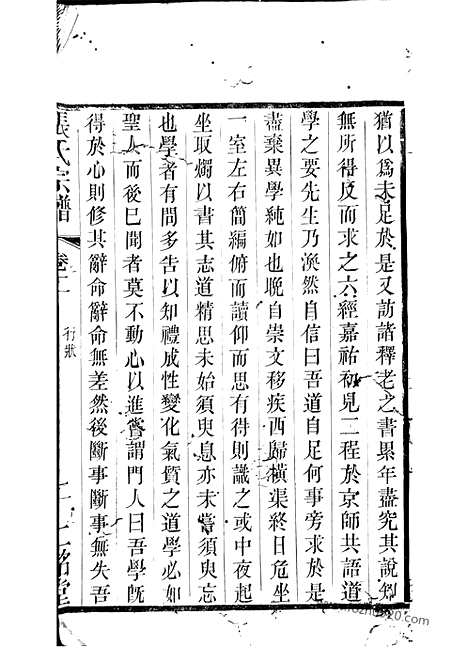 猶以爲未足於是又訪諸釋老之書累年盡究其說知
無所得反而求之六經嘉祐初見二程於京師共語道
學之要先生乃渙然自信曰吾道自足何事旁求於是
盡棄異學純如也晚自崇文移疾西歸橫渠終日危坐
一室左右簡編俯而讀仰而思有得則識之或中夜起
坐取燭以書其志道精思未始須臾息亦未嘗須臾忘
也學者有問多告以知禮成性變化氣質之道學必如
聖人而後已聞者莫不動心以進嘗謂門人曰吾學旣
得於心則修其辭命辭命無差然後斷事斷事無失吾
張氏宗譜 卷二 行狀